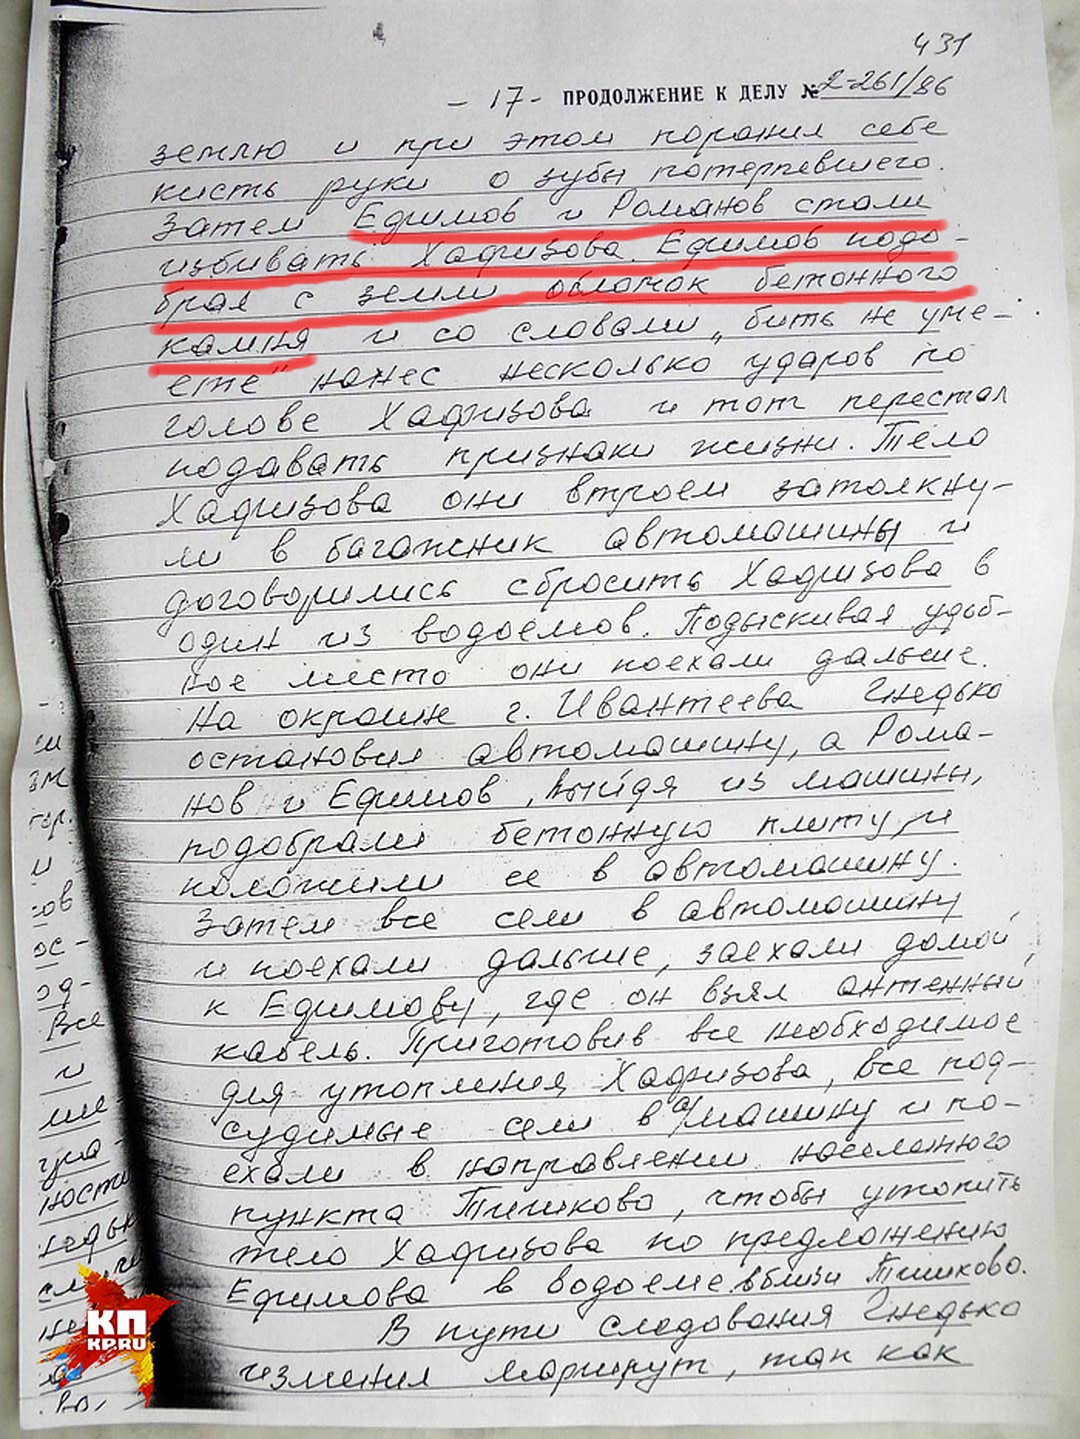 431
- 17 - ПРОДОЛЖЕНИЕ К ДЕЛУ № 2-261/86
землю и при этом поранил себе
кисть руки о зубы потерпевшего.
Затем Ефимов и Романов стали
избивать Хафизова. Ефимов подо-
брал с земли обломок бетонного
камня и со словами „бить не уме-
ете" нанес несколько ударов по
голове Хафизова и тот перестал
подавать признаки жизни. Тело
Хафизова они втроем затолкну-
ли в багажник автомашины и
договорились сбросить Хафизова в
один из водоемов. Подыскивая удоб-
ное место они поехали дальше.
На окраине г. Ивантеева Гнедько
остановил автомашину, а Рома-
нов и Ефимов, выйдя из машины,
подобрали бетонную плиту и
положили ее в автомашину.
Затем все сели в автомашину
и поехали дальше, заехали домой
к Ефимову, где он взял антенный
кабель. Приготовив все необходимое
для утопления Хафизова, все под-
судимые сели в а/машину и по-
ехали в направлении населенного
пункта Тишково, чтобы утопить
тело Хафизова по предложению
Ефимова в водоеме вблизи Тишково.
В пути следования Гнедько
изменил маршрут, так как
зм
гор.
и
ов
ос-
од-
Все
и
ности
КП
KP.RU